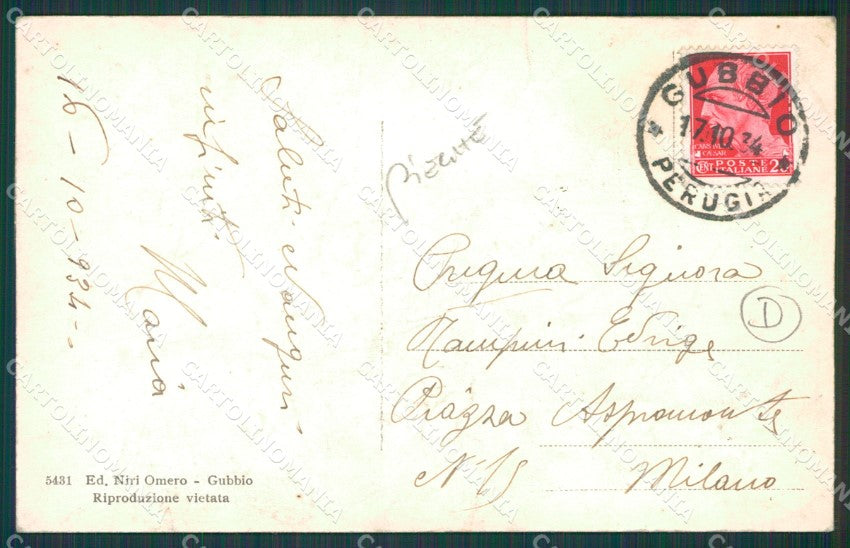 16-10-934-
Saluti e Auguri
infiniti
Maria
piccolo
GUBBIO
17.10.34
PERUGIA
CAESAR
CENT POSTE 20
ITALIANE
Signora
Edvige
Piazza Aspromonte
N. 15 Milano
D
5431 Ed. Niri Omero - Gubbio
Riproduzione vietata
CARTOLINOMANIA